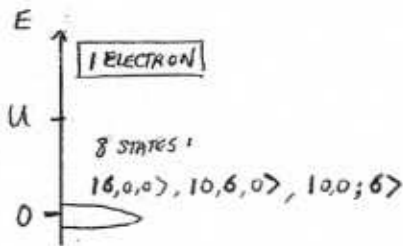 E
1 ELECTRON
U
8 STATES:
|6,0,0>, |0,6,0>, |0,0;6>
0